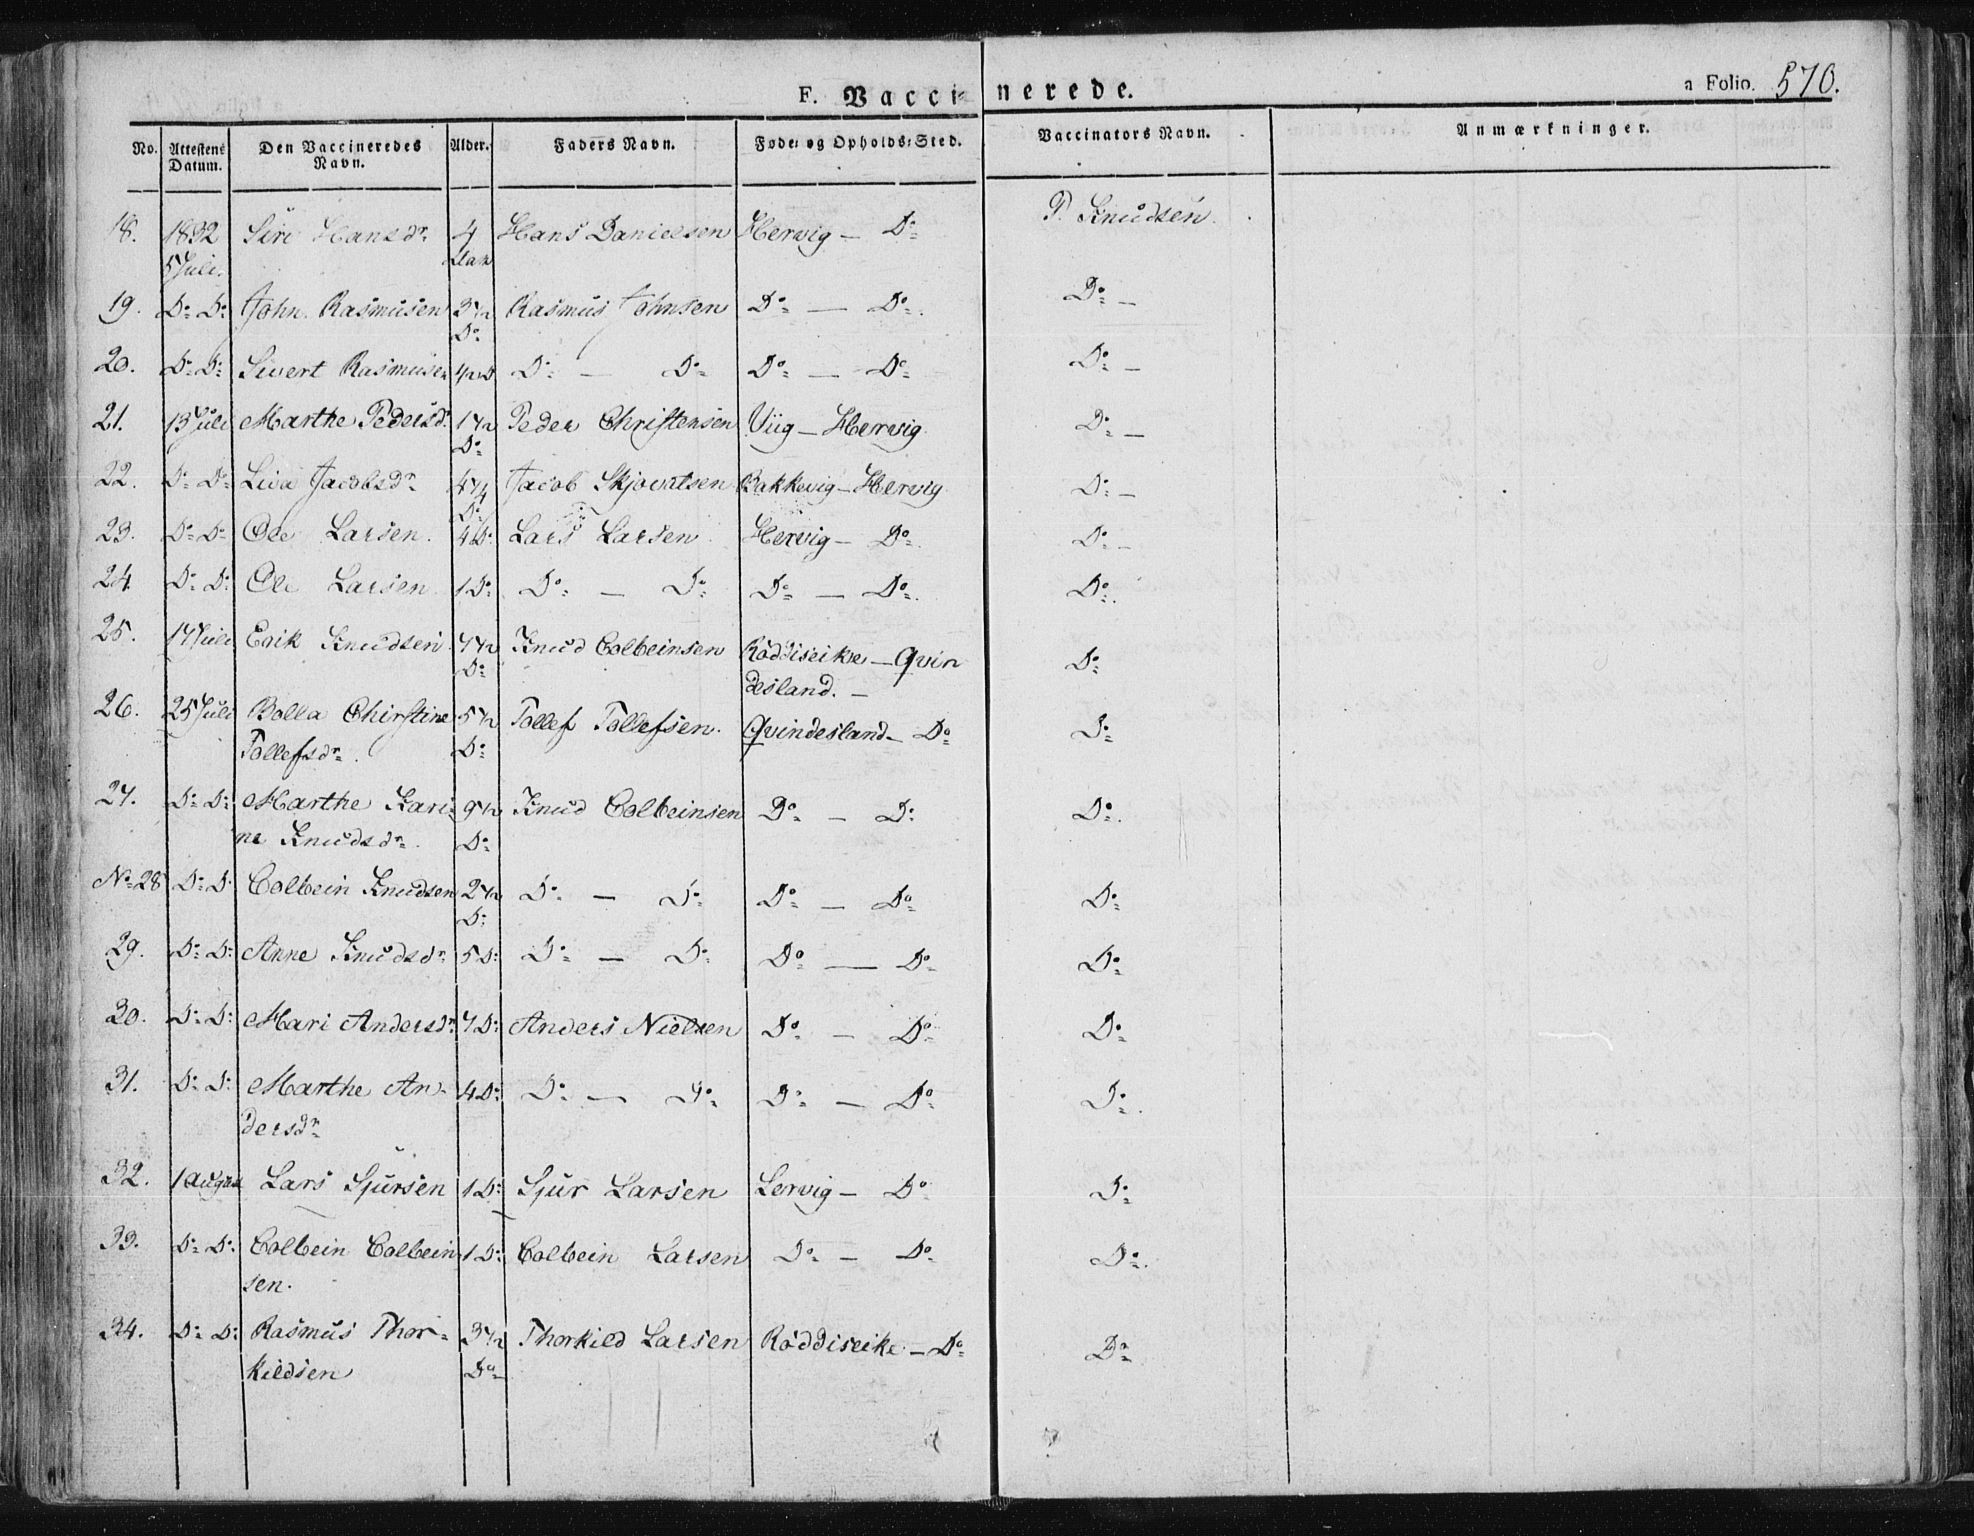 F. Vaccinerede. a Folio. 570.
No. Attestens Datum. Den Vaccineredes Navn. Alder. Faders Navn. Føde- og Opholds-Sted. Vaccinators Navn. Anmærkninger.
18. 1832 5 Juli. Siri Hansdr. 4 Aar Hans Danielsen Hervig — Do P. Knudsen
19. Do Do John Rasmusen 3 1/2 Do Rasmus Johnsen Do — Do Do —
20. Do Do Sivert Rasmusen Do — Do Do — Do Do —
21. 13 Juli Marthe Pedersdr. 1 1/2 Do Peder Christensen Viig — Hervig Do —
22. Do Do Liva Jacobsdr. Do Jacob Skjovalsen Bakkevig — Hervig Do —
23. Do Do Ole Larsen. 4 Do Lars Larsen Hervig — Do Do —
24. Do Do Ole Larsen 1 Do Do — Do Do — Do Do
25. 17 Juli Erik Knudsen 7 1/2 Do Knud Colbeinsen Röddiseike — Qvin
desland. — Do
26. 25 Juli Bolla Chirstine 5 1/2 Tollef Tollefsen. Qvindesland — Do Do
Tollefsdr. Do
27. Do Do Marthe Kari- 9 1/2 Knud Colbeinsen Do — Do Do
ne Knudsdr. Do
No 28 Do Do Colbein Knudsen 2 1/2 Do Do — Do Do — Do Do
29. Do Do Anne Knudsdr. 5 Do Do — Do Do — Do Do
30. Do Do Mari Andersdr. 7 Do Anders Nielsen Do — Do Do
31. Do Do Marthe An- 4 Do Do — Do Do — Do Do
dersdr.
32. 1 August Lars Sjursen 1 Do Sjur Larsen Lervig — Do Do
33. Do Do Colbein Colbein 1 Do Colbein Larsen Do — Do Do
sen.
34. Do Do Rasmus Thor- 3 1/2 Thorkild Larsen Röddiseike — Do Do
kildsen Do